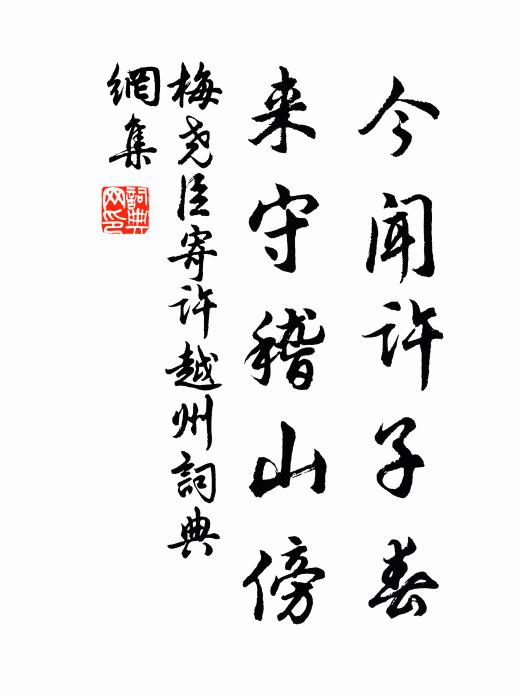 今闻许子春
来守稽山傍
梅尧臣寄许越州詞典
網集
詞典
网印